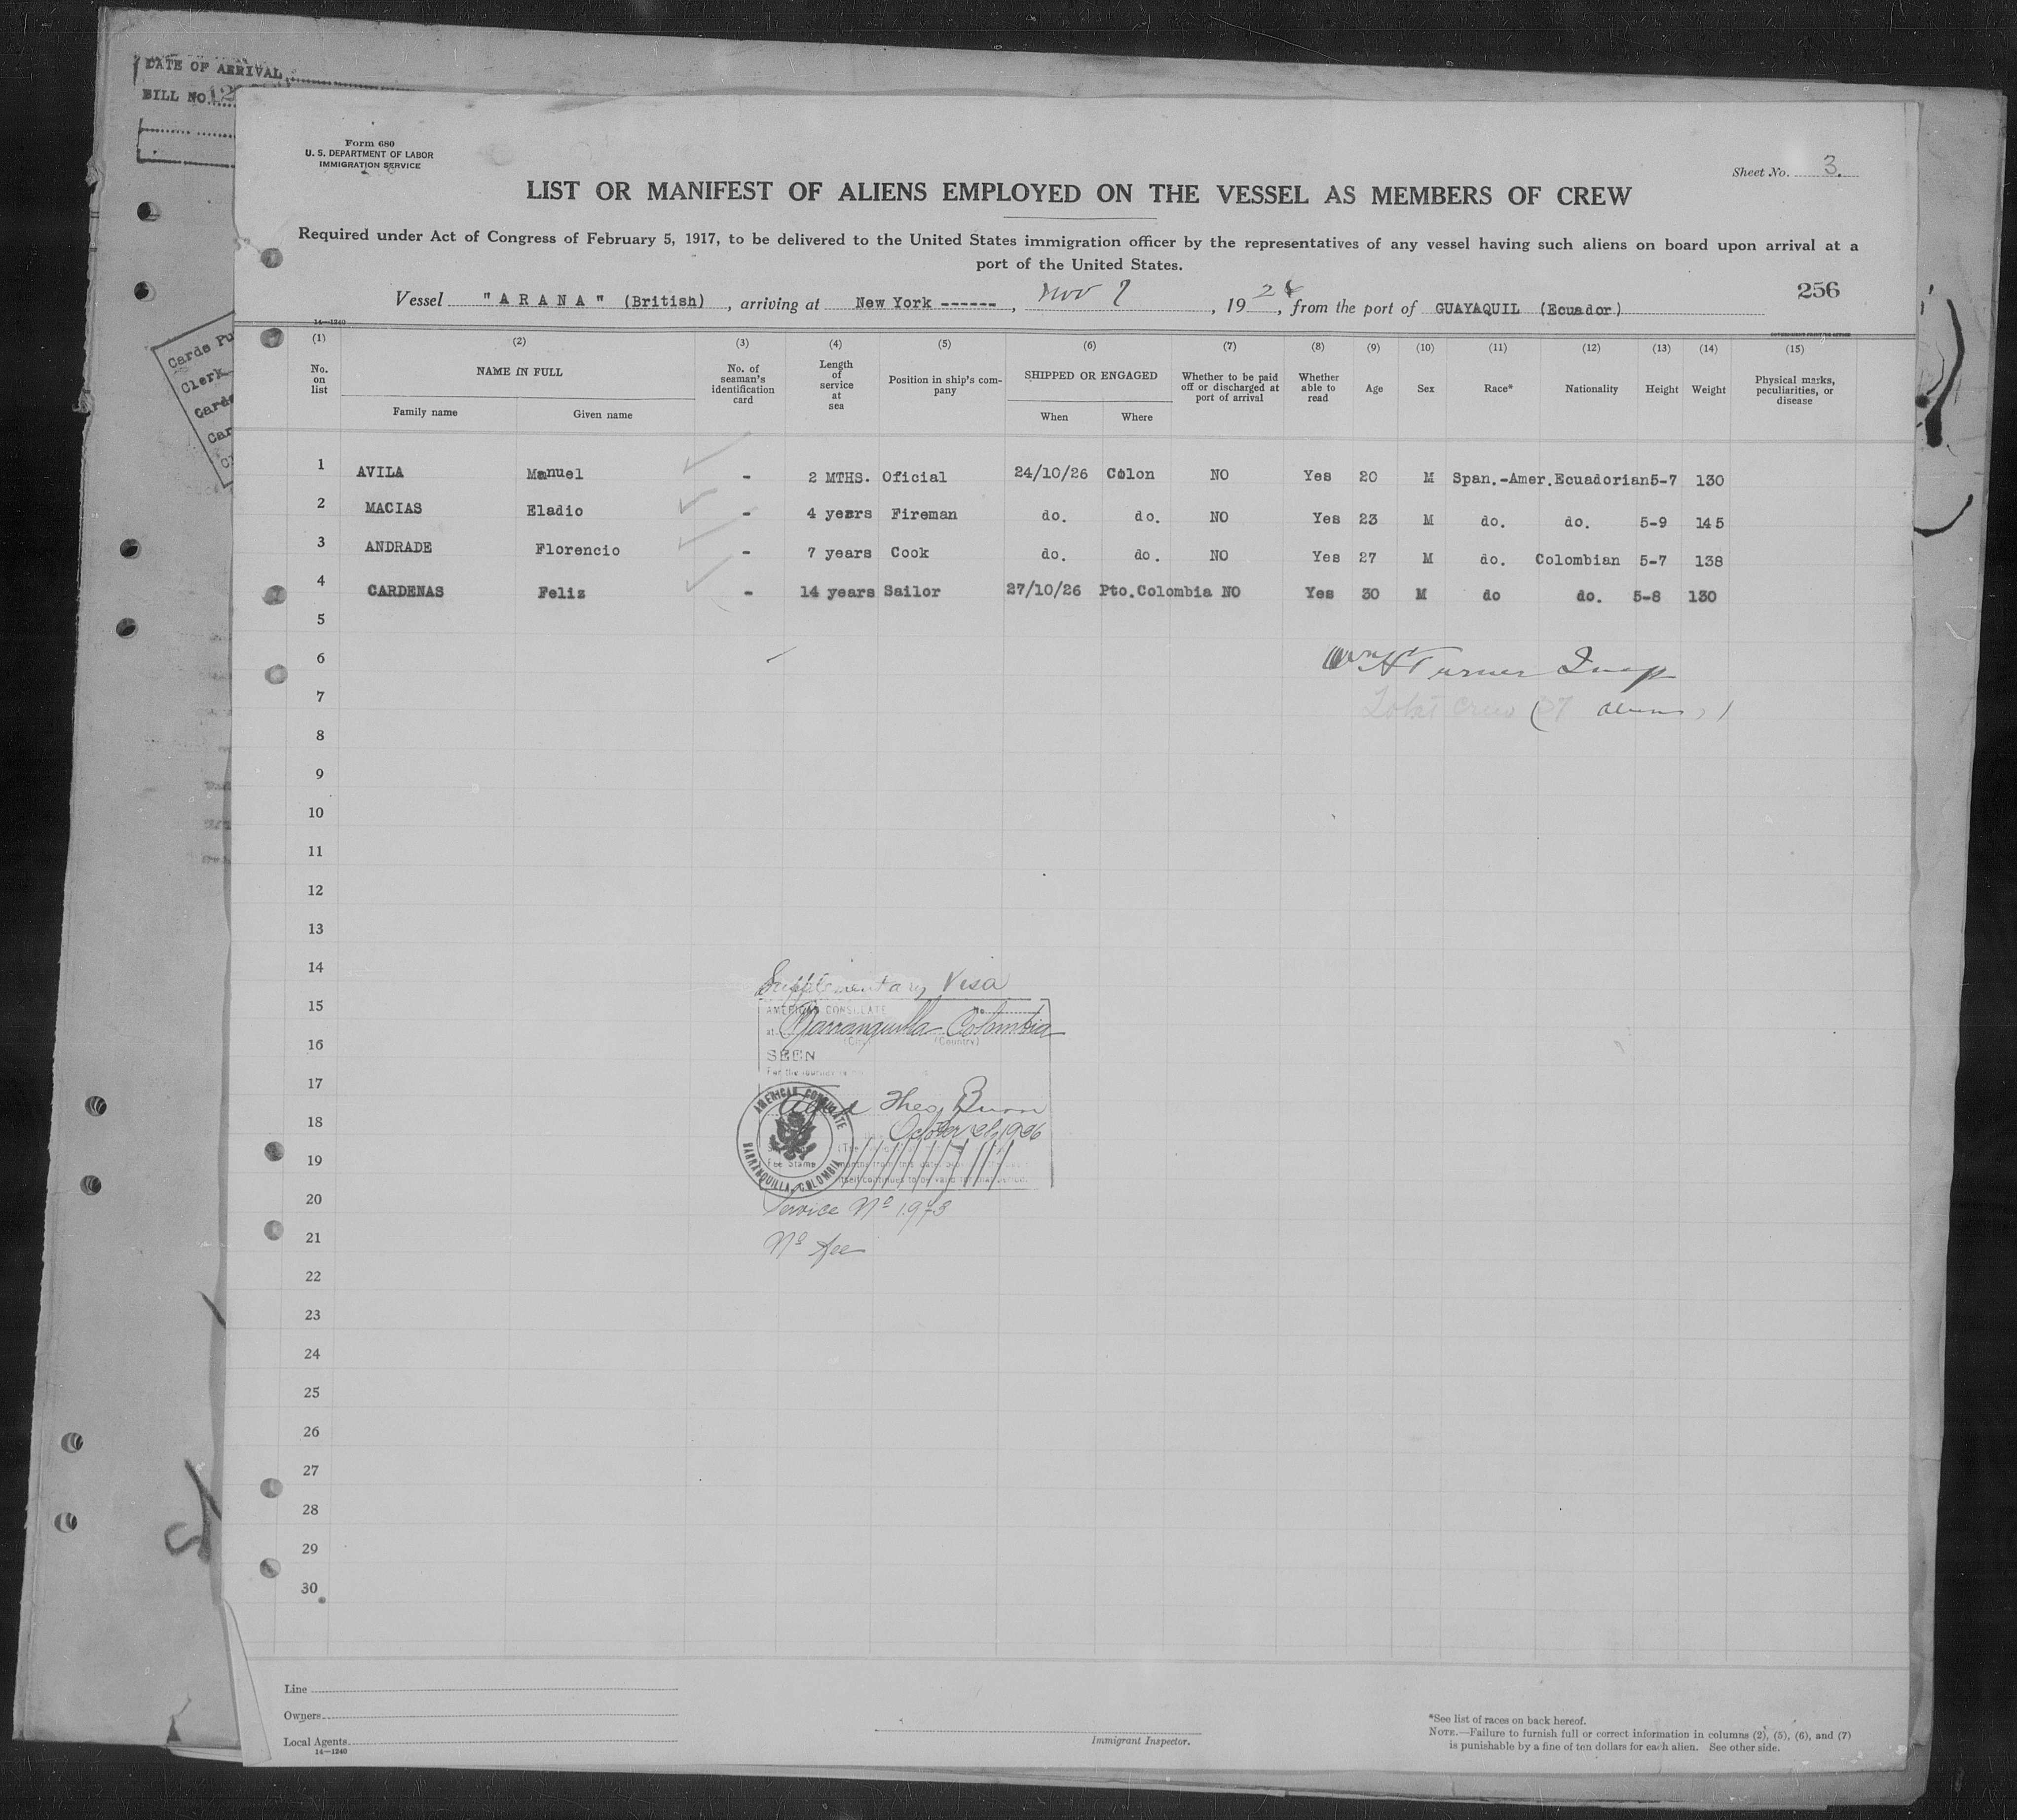 DATE OF ARRIVAL
BILL NO.
Cards
Clerk
Cards
Form 680
U. S. DEPARTMENT OF LABOR
IMMIGRATION SERVICE
Sheet No. 3.
LIST OR MANIFEST OF ALIENS EMPLOYED ON THE VESSEL AS MEMBERS OF CREW
Required under Act of Congress of February 5, 1917, to be delivered to the United States immigration officer by the representatives of any vessel having such aliens on board upon arrival at a
port of the United States.
256
Vessel "ARANA" (British), arriving at New York ------, Nov 7, 19 , from the port of GUAYAQUIL (Ecuador)
14—1240
(1) (2) (3) (4) (5) (6) (7) (8) (9) (10) (11) (12) (13) (14) (15)
No. on list NAME IN FULL Family name Given name No. of seaman's identification card Length of service at sea Position in ship's company SHIPPED OR ENGAGED When Where Whether to be paid off or discharged at port of arrival Whether able to read Age Sex Race* Nationality Height Weight Physical marks, peculiarities, or disease
1 AVILA Manuel - 2 MTHS. Oficial 24/10/26 Colon NO Yes 20 M Span.-Amer. Ecuadorian 5-7 130
2 MACIAS Eladio - 4 years Fireman do. do. NO Yes 23 M do. do. 5-9 145
3 ANDRADE Florencio - 7 years Cook do. do. NO Yes 27 M do. Colombian 5-7 138
4 CARDENAS Feliz - 14 years Sailor 27/10/26 Pto.Colombia NO Yes 30 M do do. 5-8 130
5
6 Wm H Turner Insp
7 Total Crew (37 aliens)
8
9
10
11
12
13
14 Supplementary Visa
15 AMERICAN CONSULATE No.
at Barranquilla Colombia
16 (City) (Country)
SEEN
For the journey
17
Alfred Theo. Burri
18 October 26, 1926
AMERICAN CONSULATE
BARRANQUILLA, COLOMBIA
19 Fee Stamp
20 Service No 1973
21 No fee
22
23
24
25
26
27
28
29
30
Line
Owners
Local Agents
14—1240
Immigrant Inspector.
*See list of races on back hereof.
NOTE.—Failure to furnish full or correct information in columns (2), (5), (6), and (7)
is punishable by a fine of ten dollars for each alien. See other side.